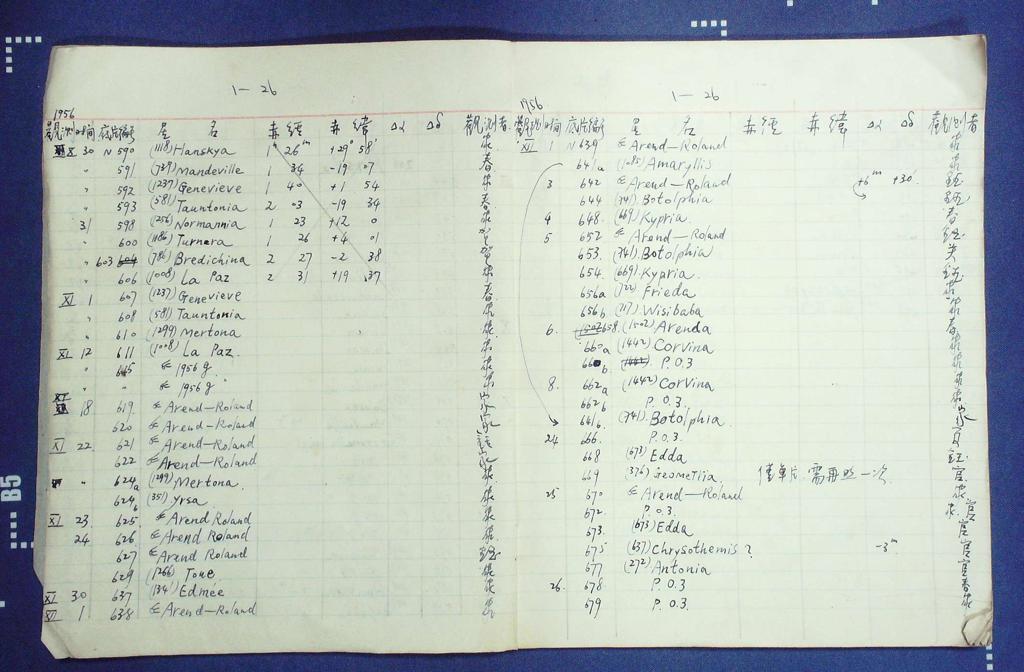 1—26
1956
觀測時間 底片編號 星名 赤經 赤緯 Δα Δδ 觀測者
X 30 N 590 (1118) Hanskya 1h 26m +29° 58'
" 591 (739) Mandeville 1 34 -19 07
" 592 (1237) Genevieve 1 40 +1 54
" 593 (581) Tauntonia 2 03 -19 34
" 31 598 (1256) Normannia 1 23 +12 0
" 600 (1186) Turnera 1 26 +4 01
" 603 604 (786) Bredichina 2 27 -2 38
" 606 (1008) La Paz 2 31 +19 37
XI 1 607 (1237) Genevieve
" 608 (581) Tauntonia
" 610 (1299) Mertona
XI 12 611 (1008) La Paz
" 615 1956 g
" " 1956 g
XI 18 619 Arend—Roland
620 Arend—Roland
XI 22 621 Arend—Roland
622 Arend—Roland
" 624a (1299) Mertona
624b (351) Yrsa
XI 23 625 Arend Roland
24 626 Arend Roland
627 Arend Roland
629 (1266) Tone
XI 30 637 (1341) Edmee
XII 1 638 Arend—Roland
1—26
1956
觀測時間 底片編號 星名 赤經 赤緯 Δα Δδ 觀測者
XII 1 N 639 Arend—Roland
641a (1085) Amaryllis
3 642 Arend—Roland +6m +30'
644 (741) Botolphia
4 648 (669) Kypria
5 652 Arend—Roland
653 (741) Botolphia
654 (669) Kypria
656a (722) Frieda
656b (717) Wisibaba
6 658 (1502) Arenda
660a (1442) Corvina
660b P.O.3
8 662a (1442) Corvina
662b P.O.3.
641b (741) Botolphia
24 666 P.O.3.
668 (673) Edda
669 (376) Geometria 僅單片 需再照一次
25 670 Arend—Roland
672 P.O.3.
673 (673) Edda
675 (637) Chrysothemis ? -3m
677 (272) Antonia
26 678 P.O.3
679 P.O.3.
B5